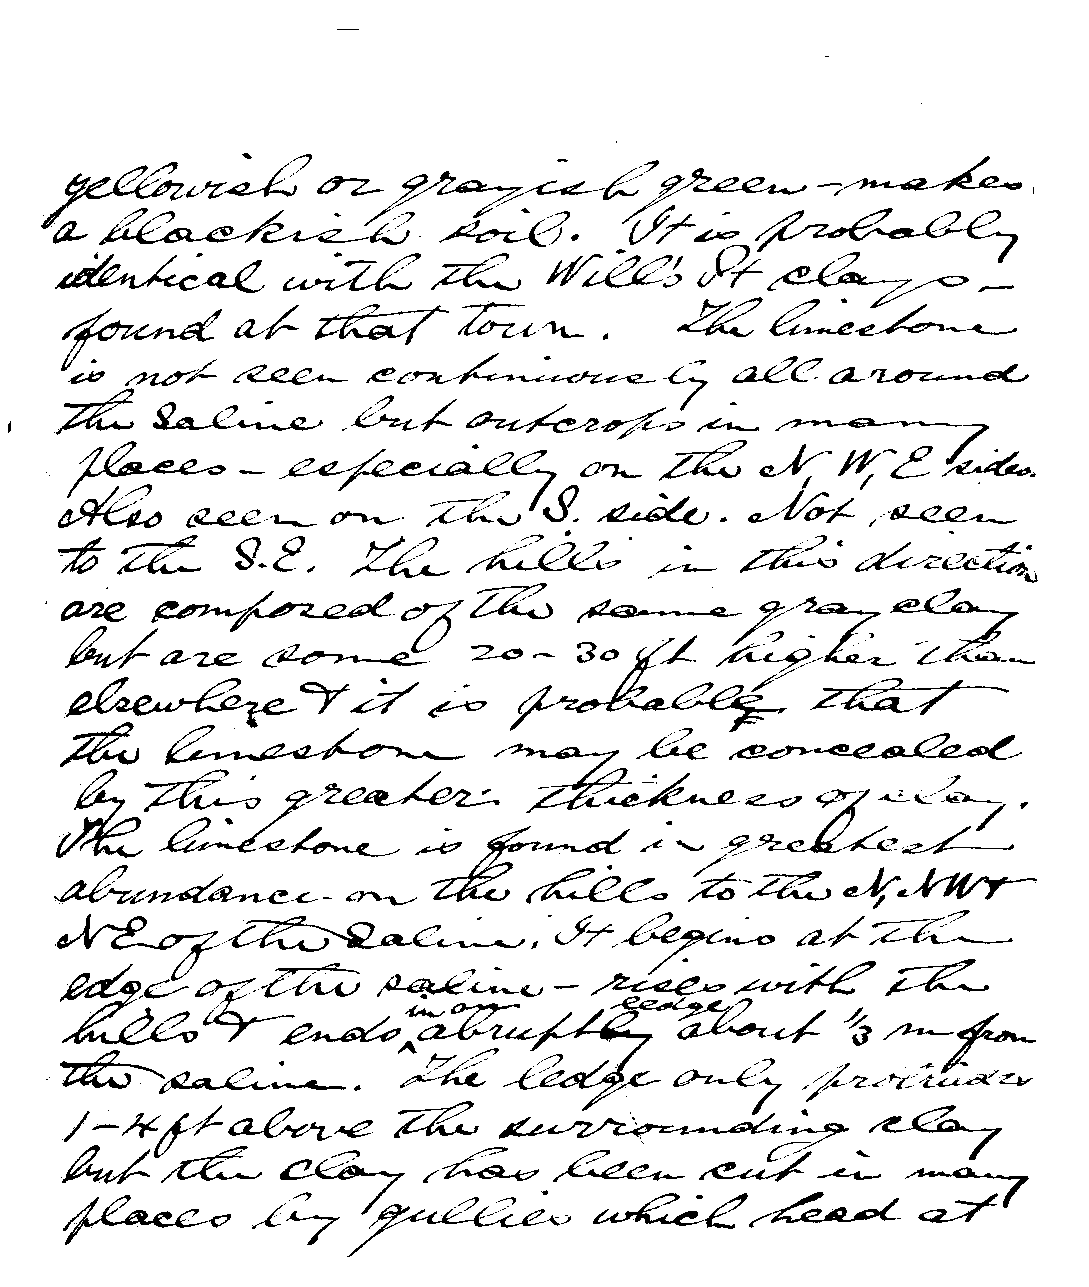 yellowish or grayish green - makes
a blackish soil. It is probably
identical with the Will's Pt clays -
found at that town. The limestone
is not seen continuously all around
the Saline but outcrops in many
places - especially on the N, W, E sides.
Also seen on the S. side. Not seen
to the S.E. The hills in this direction
are composed of the same gray clay
but are some 20-30 ft higher than
elsewhere & it is probable that
the limestone may be concealed
by this greater thickness of clay.
The limestone is found in greatest
abundance on the hills to the N, NW &
NE of the Saline. It begins at the
edge of the saline - rises with the
hills & ends in an abrupt ledge about 1/3 m from
the saline. The ledge only protrudes
1-4 ft above the surrounding clay
but the clay has been cut in many
places by gullies which head at